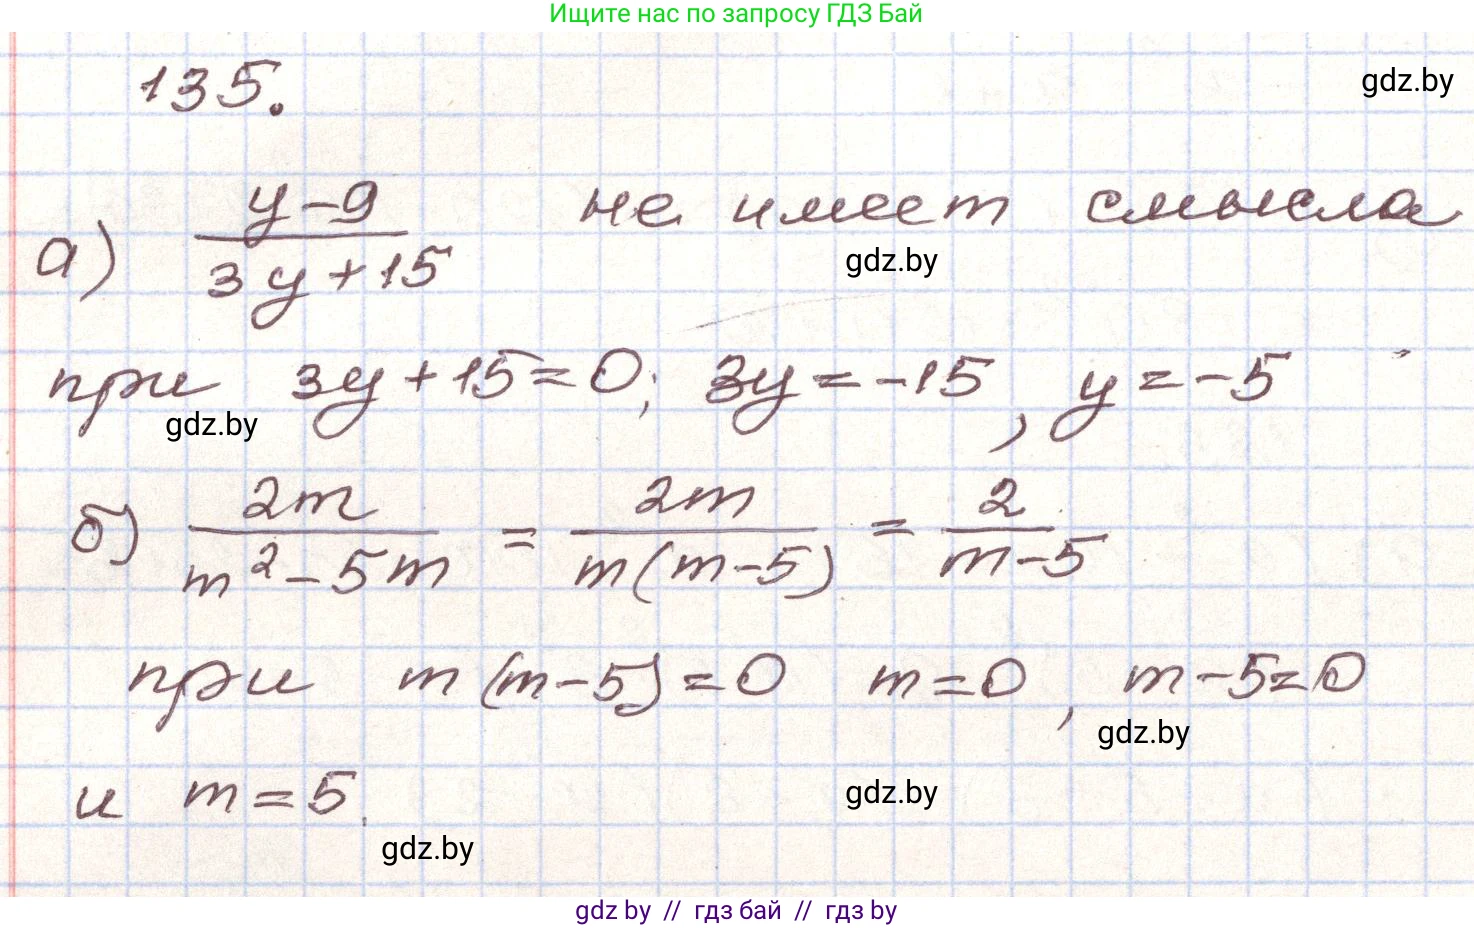 Ищите нас по запросу ГДЗ Бай
135.
gdz.by
а) (y-9)/(3y+15) не имеет смысла
gdz.by
при 3y+15=0; 3y=-15, y=-5
gdz.by
б) 2m/(m²-5m) = 2m/(m(m-5)) = 2/(m-5)
при m(m-5)=0 m=0, m-5=0
gdz.by
и m=5.
gdz.by
gdz.by
gdz by // гдз бай // гдз by